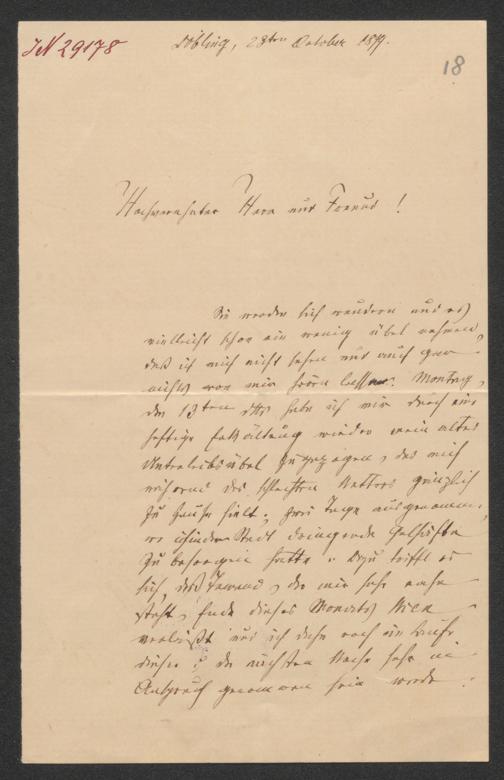 IN 29178
Döbling, 28ten October 1879.
18
Hochverehrter Herr und Freund!
Sie werden sich wundern und es
vielleicht schon ein wenig übel nehmen,
daß ich mich nicht sehen und auch gar
nichts von mir hören lasse. Montag,
den 13ten dß habe ich mir durch eine
heftige Erkältung wieder mein altes
Unterleibsübel zugezogen, das mich
während des schlechten Wetters gänzlich
zu Hause hielt; zwei Tage ausgenommen,
wo ich in der Stadt dringende Geschäfte
zu besorgen hatte. Dazu trifft es
sich, daß Jemand, der mir sehr nahe
steht, Ende dieses Monats Wien
verläßt und ich daher noch im Laufe
dieser u. der nächsten Woche sehr in
Anspruch genommen sein werde.